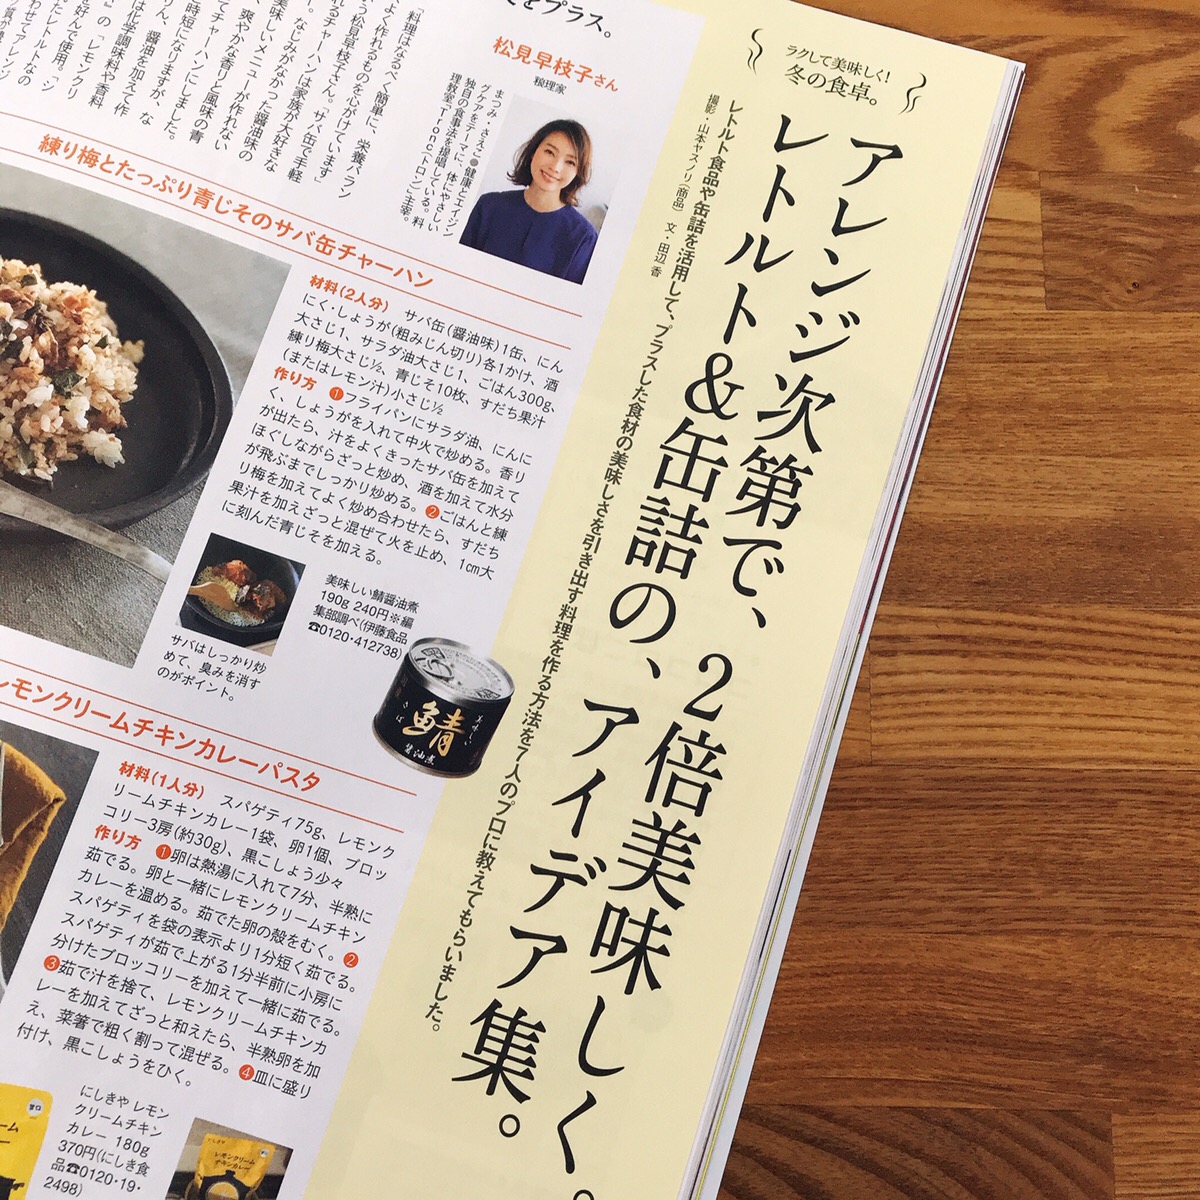 ラクして美味しく!
冬の食卓。
アレンジ次第で、2倍美味しく。
レトルト&缶詰の、アイデア集。
レトルト食品や缶詰を活用して、プラスした食材の美味しさを引き出す料理を作る方法を7人のプロに教えてもらいました。
撮影・山本ヤスノリ(商品) 文・田辺 香
をプラス。
松見早枝子さん
税理家
まつみ・さえこ●健康とエイジン
グケアをテーマに、体にやさしい
独自の食事法を提唱している。料
理教室『Tronc(トロン)』主宰。
「料理はなるべく簡単に、栄養バラン
よく作れるものを心がけています」
う松見早枝子さん。「サバ缶で手軽
れるチャーハン」は家族が大好きな
。なじみがなかった醤油味の
美味しいメニューが作れない
、爽やかな香りと風味の青
てチャーハンにしました。
練り梅とたっぷり青じそのサバ缶チャーハン
材料(2人分) サバ缶(醤油味)1缶、にん
にく・しょうが(粗みじん切り)各1かけ、酒
大さじ1、サラダ油大さじ1、ごはん300g、
練り梅大さじ½、青じそ10枚、すだち果汁
(またはレモン汁)小さじ½
作り方 ❶フライパンにサラダ油、にんに
く、しょうがを入れて中火で炒める。香り
が出たら、汁をよくきったサバ缶を加えて
ほぐしながらざっと炒め、酒を加えて水分
が飛ぶまでしっかり炒める。❷ごはんと練
り梅を加えてよく炒め合わせたら、すだち
果汁を加えざっと混ぜて火を止め、1cm大
に刻んだ青じそを加える。
サバはしっかり炒
めて、臭みを消す
のがポイント。
美味しい鯖醤油煮
190g 240円※編
集部調べ(伊藤食品
☎0120・412738)
美味しい
鯖
醤油煮
レモンクリームチキンカレーパスタ
材料(1人分) スパゲティ75g、レモンク
リームチキンカレー1袋、卵1個、ブロッ
コリー3房(約30g)、黒こしょう少々
作り方 ❶卵は熱湯に入れて7分、半熟に
茹でる。卵と一緒にレモンクリームチキン
カレーを温める。茹でた卵の殻をむく。❷
スパゲティを袋の表示より1分短く茹でる。
スパゲティが茹で上がる1分半前に小房に
分けたブロッコリーを加えて一緒に茹でる。
❸茹で汁を捨て、レモンクリームチキンカ
レーを加えてざっと和えたら、半熟卵を加
え、菜箸で粗く割って混ぜる。❹皿に盛り
付け、黒こしょうをひく。
にしきや レモン
クリームチキン
カレー 180g
370円(にしき食
品☎0120・19・
2498)
にしきや
レモンクリーム
チキンカレー